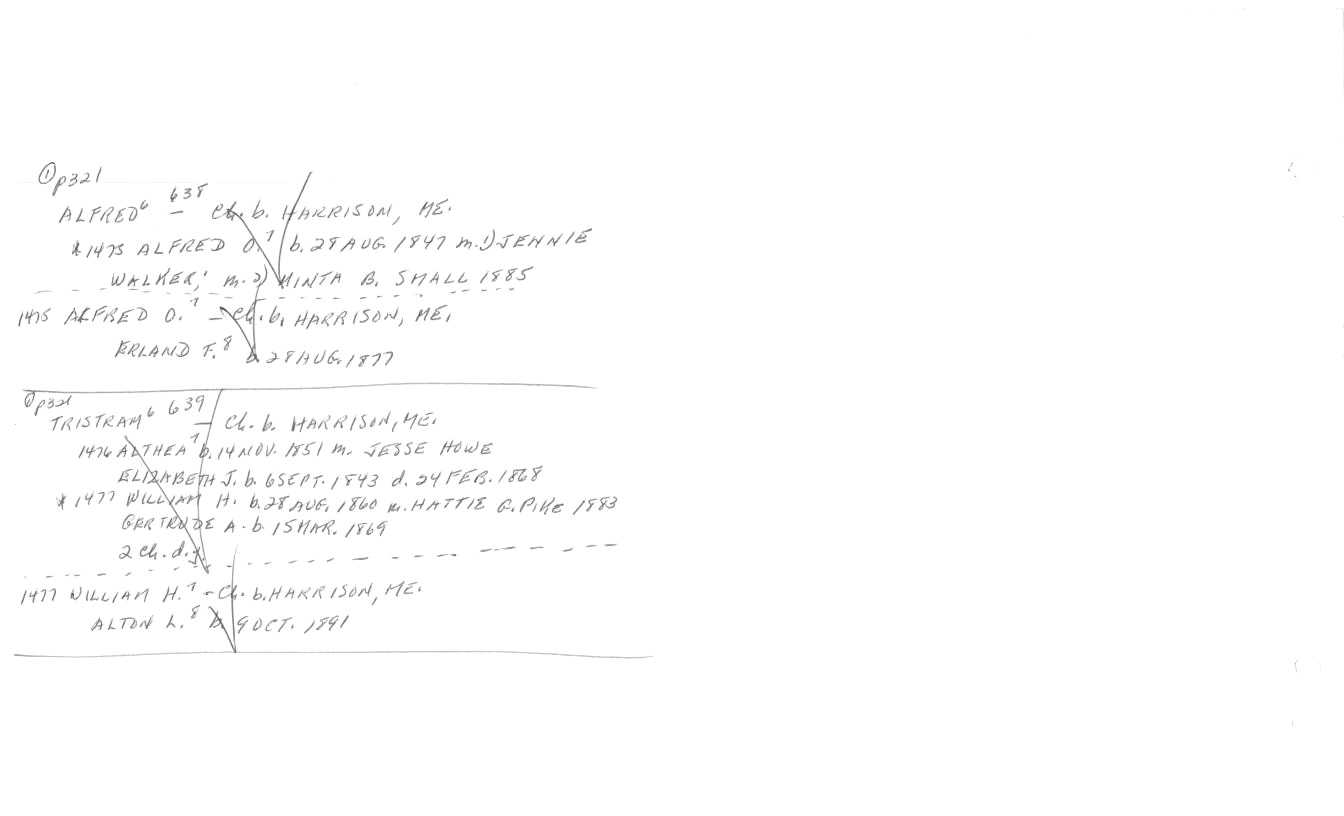 ① p321
ALFRED⁶ 638 — Ch. b. HARRISON, ME.
* 1475 ALFRED O.⁷ b. 28 AUG. 1847 m. 1) JENNIE
WALKER; m. 2) MINTA B. SMALL 1885
1475 ALFRED O.⁷ — Ch. b. HARRISON, ME.
ERLAND F.⁸ b. 28 AUG. 1877
① p321
TRISTRAM⁶ 639 — Ch. b. HARRISON, ME.
1476 ALTHEA⁷ b. 14 NOV. 1851 m. JESSE HOWE
ELIZABETH J. b. 6 SEPT. 1843 d. 24 FEB. 1868
* 1477 WILLIAM H. b. 28 AUG. 1860 m. HATTIE G. PIKE 1883
GERTRUDE A. b. 15 MAR. 1869
2 Ch. d. y.
1477 WILLIAM H.⁷ — Ch. b. HARRISON, ME.
ALTON L.⁸ b. 9 OCT. 1891